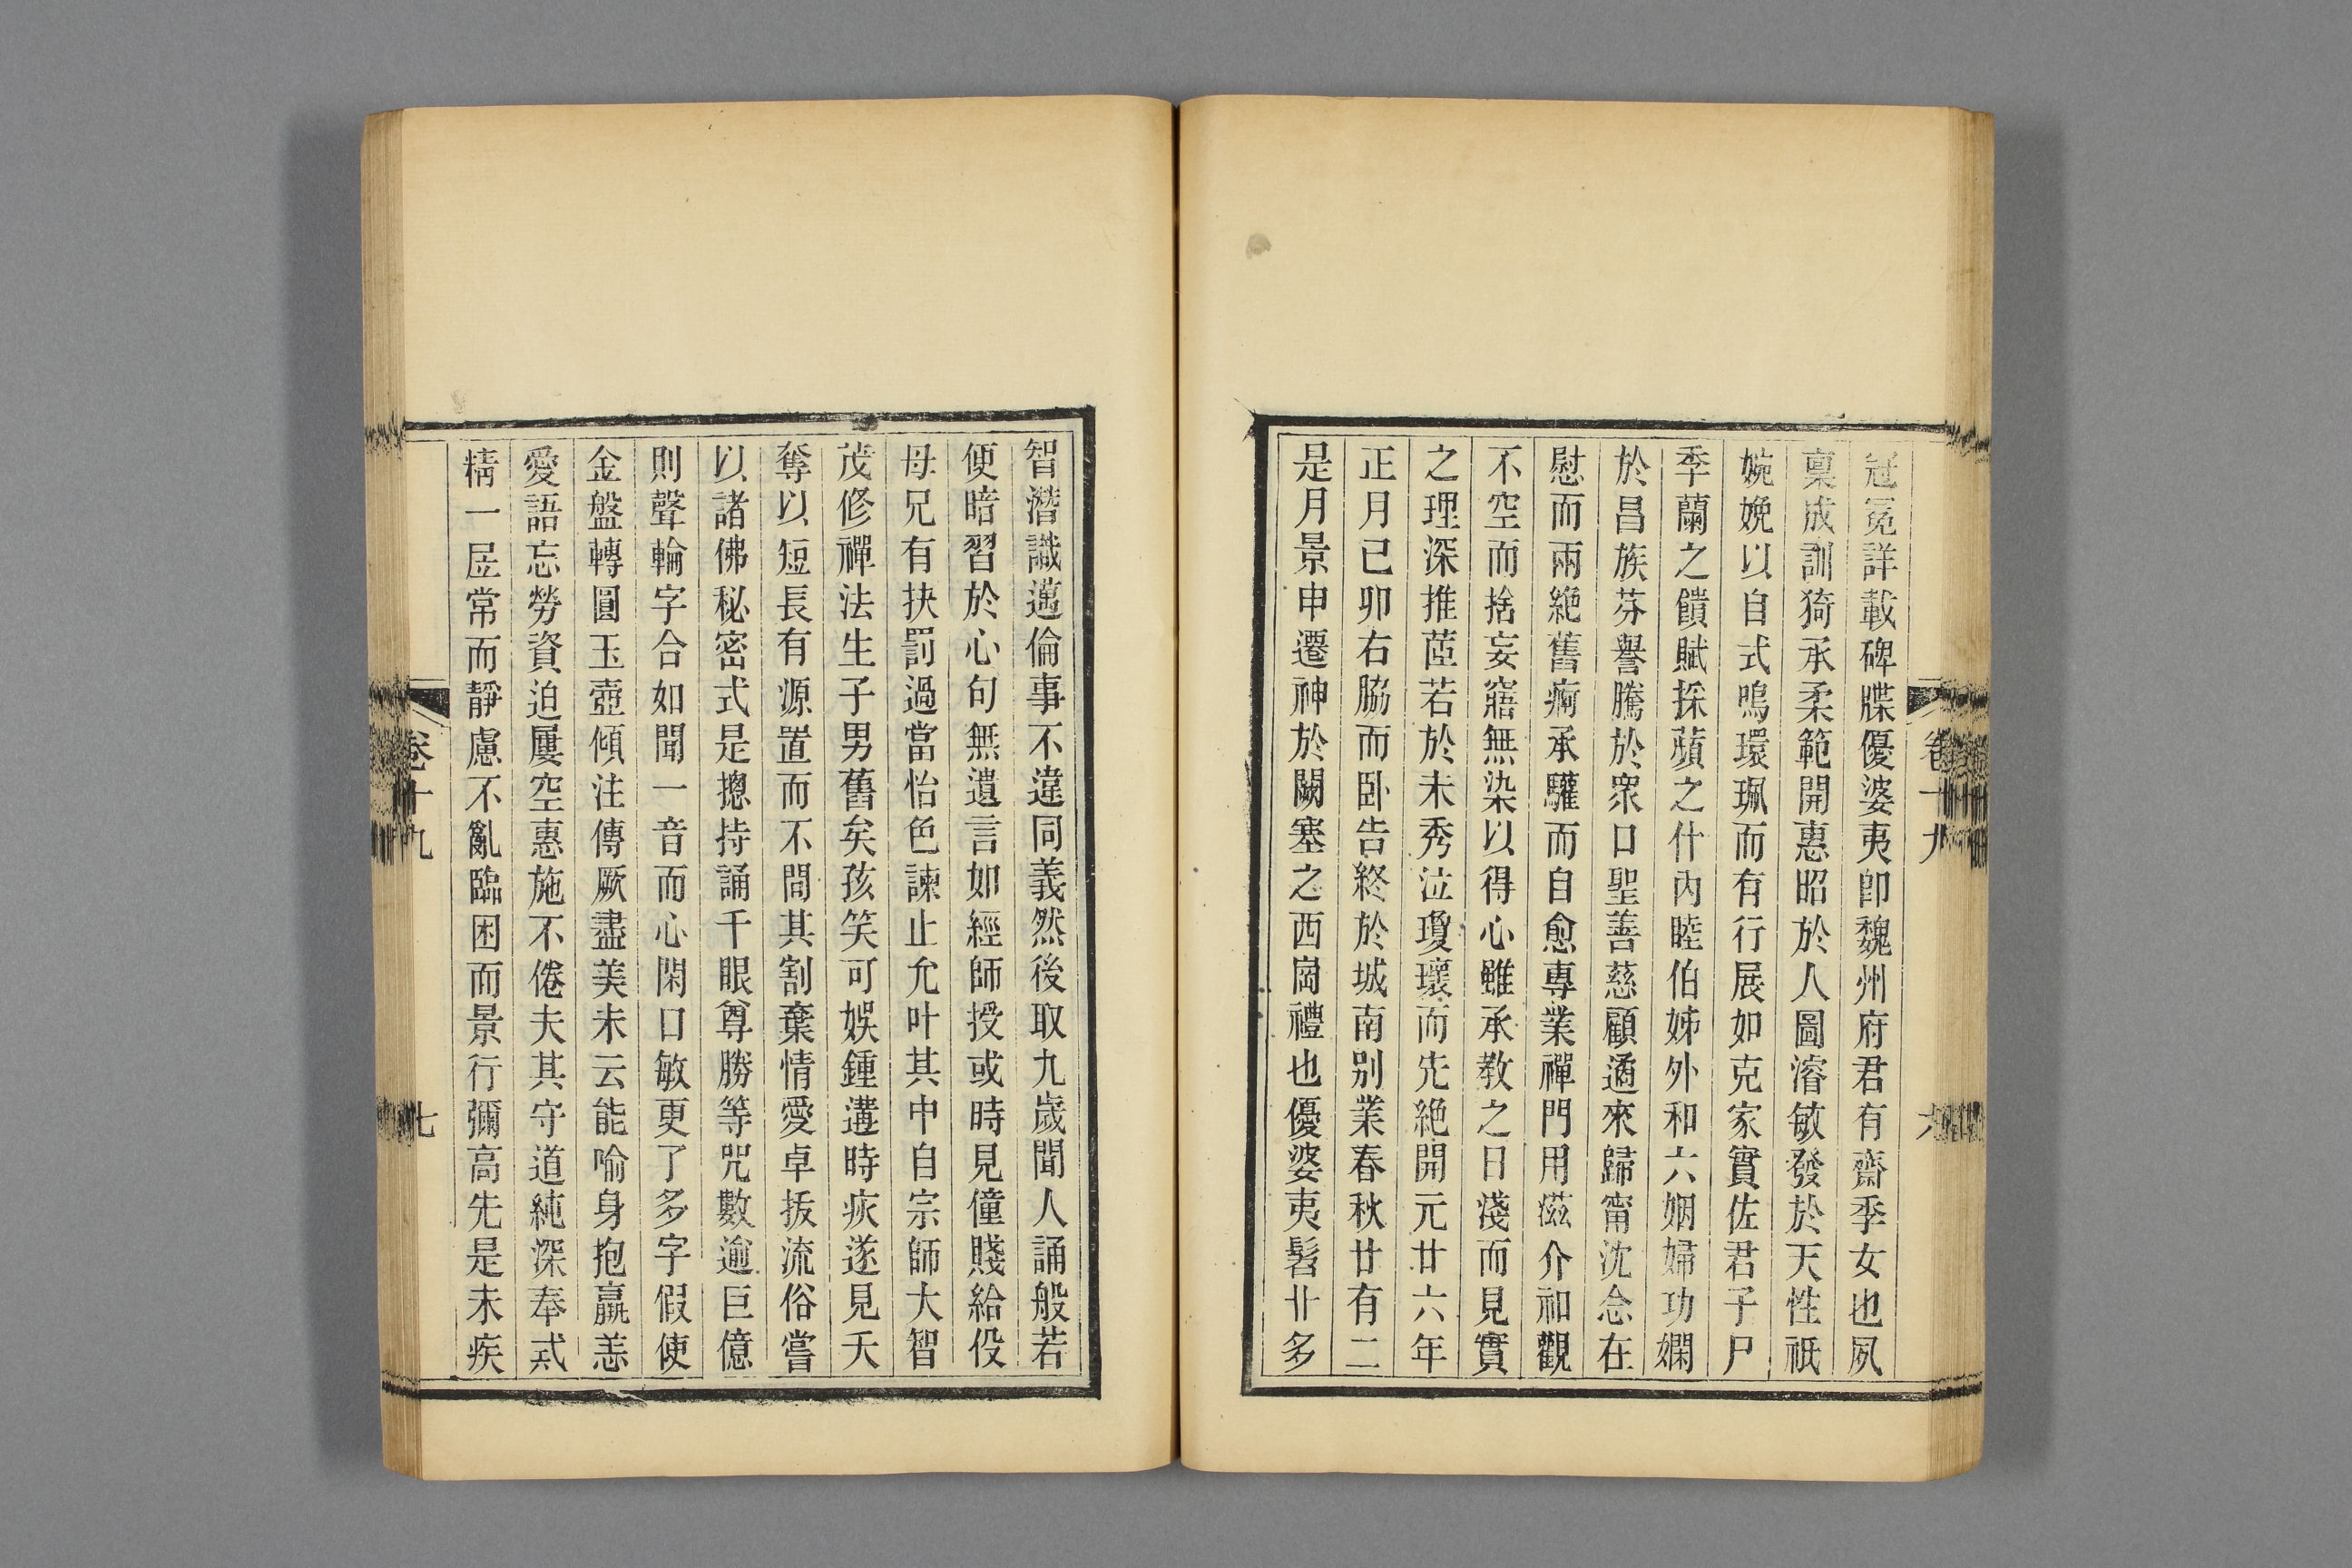 冠冕詳載碑牒優婆夷卽魏州府君有齋季女也夙
稟成訓猗承柔範開惠昭於人圖濬敏發於天性祇
婉娩以自式鳴環珮而有行展如克家實佐君子尸
季蘭之饋賦採蘋之什內睦伯姊外和六姻婦功嫻
於昌族芬譽騰於衆口聖善慈顧遹來歸甯沈念在
慰而兩絶舊痾承驩而自愈專業禪門用滋介祉觀
不空而捨妄寤無染以得心雖承敎之日淺而見實
之理深推莖若於未秀泣瓊瓌而先絶開元廿六年
正月己卯右脇而卧告終於城南別業春秋廿有二
是月景申遷神於闕塞之西崗禮也優婆夷髫丱多
卷十九
六
智潛識邁倫事不違同義然後取九歲聞人誦般若
便暗習於心句無遺言如經師授或時見僮賤給役
母兄有抶罰過當怡色諫止允叶其中自宗師大智
茂修禪法生子男舊矣孩笑可娛鍾遘時疢遂見夭
奪以短長有源置而不問其割棄情愛卓拔流俗嘗
以諸佛秘密式是摠持誦千眼尊勝等咒數逾巨億
則聲輪字合如聞一音而心閑口敏更了多字假使
金盤轉圓玉壺傾注傳厥盡美未云能喻身抱羸恙
愛語忘勞資迫屢空惠施不倦夫其守道純深奉戒
精一㞐常而靜慮不亂臨困而景行彌高先是未疾
卷十九
七